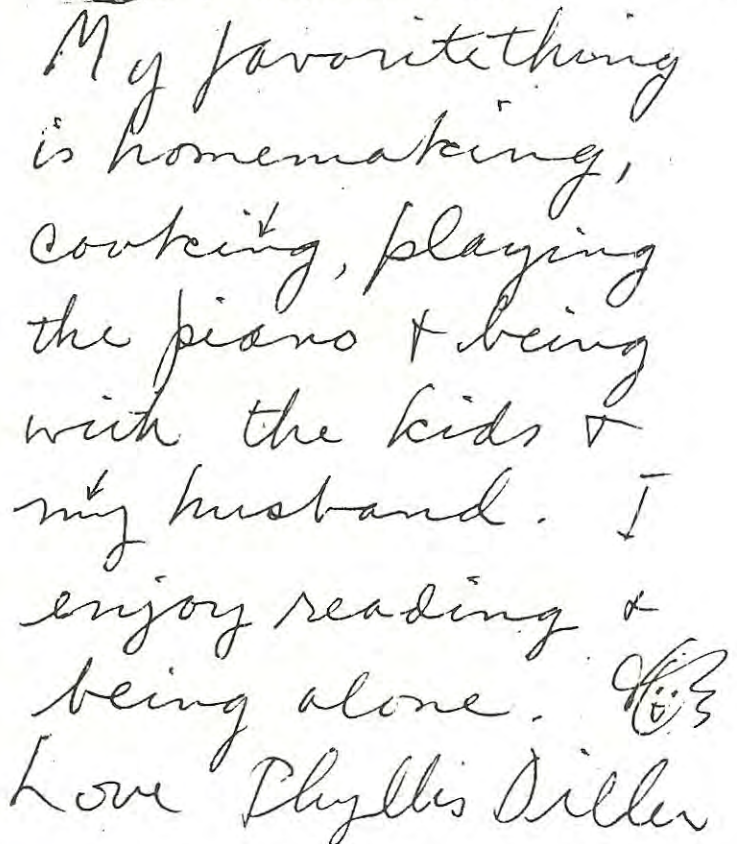 My favorite thing
is homemaking,
cooking, playing
the piano & being
with the kids &
my husband. I
enjoy reading &
being alone.
Love Phyllis Diller